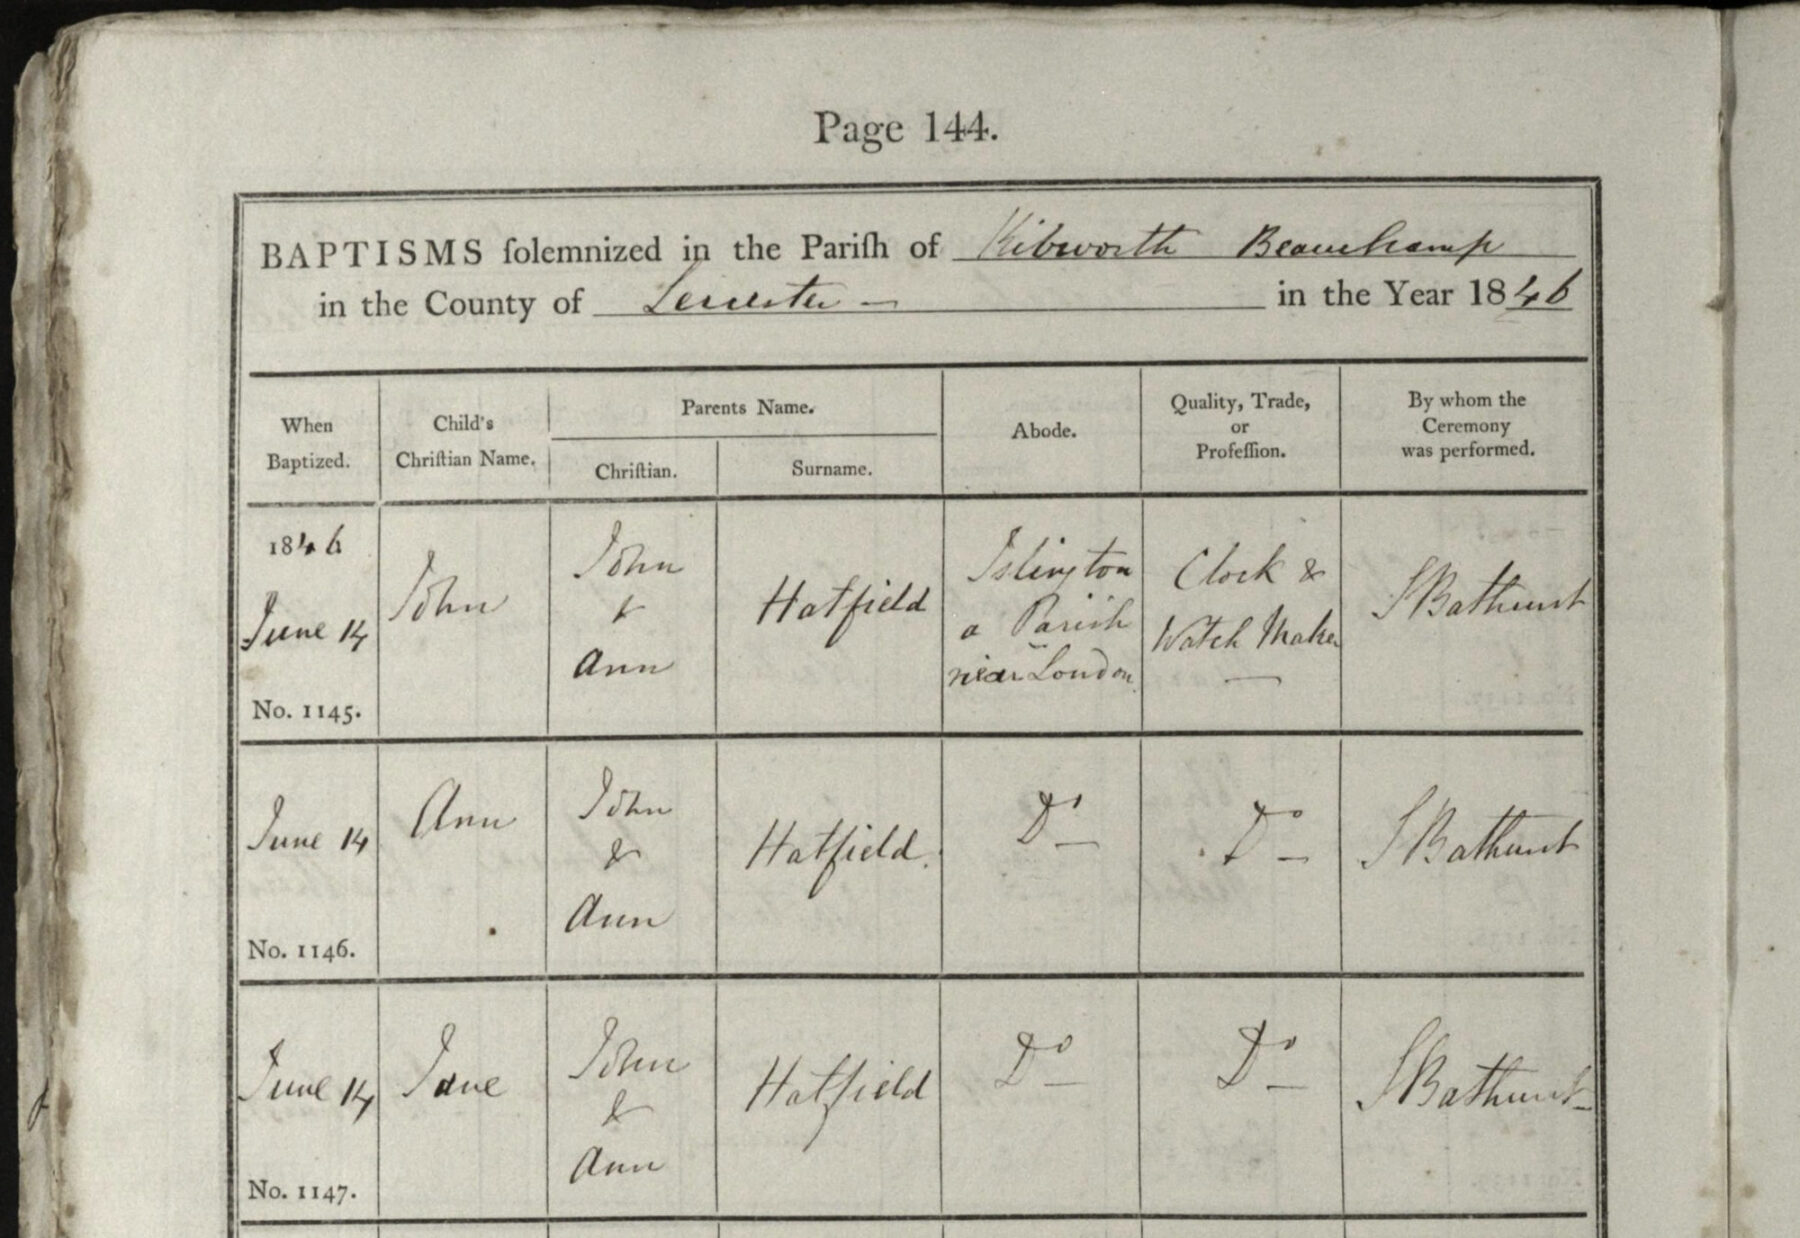 Page 144.
BAPTISMS ſolemnized in the Pariſh of Kibworth Beauchamp
in the County of Leicester — in the Year 1846
When Baptized.
Child's Chriſtian Name.
Parents Name.
Chriſtian.
Surname.
Abode.
Quality, Trade,
or
Profeſſion.
By whom the
Ceremony
was performed.
1846
June 14
No. 1145.
John
John
&
Ann
Hatfield
Islington
a Parish
near London
Clock &
Watch Maker
—
S Bathurst
June 14
No. 1146.
Ann
John
&
Ann
Hatfield.
Do —
Do —
S Bathurst
June 14
No. 1147.
Jane
John
&
Ann
Hatfield
Do —
Do —
S Bathurst